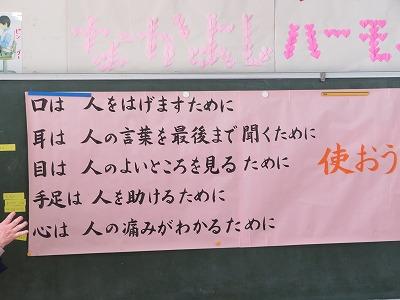 ハーモ
口は 人をはげますために
耳は 人の言葉を最後まで聞くために
目は 人のよいところを見るために
手足は 人を助けるために
心は 人の痛みがわかるために
使おう